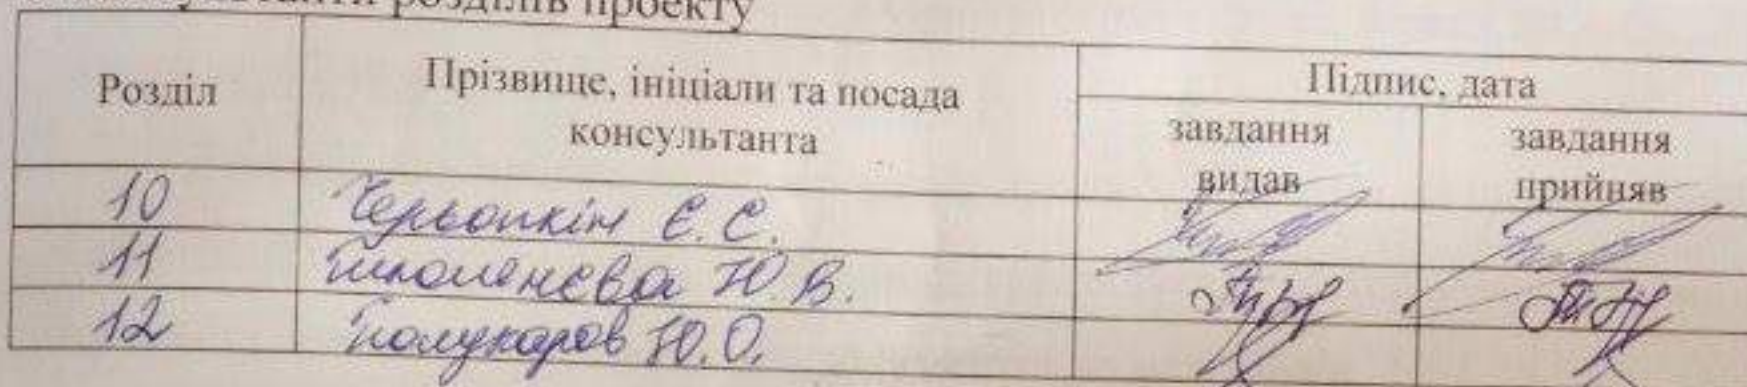 розділів проекту
Розділ Прізвище, ініціали та посада консультанта Підпис, дата
завдання видав завдання прийняв
10 Черьопкін Є. С.
11 Ю. В.
12 Полукаров Ю. О.